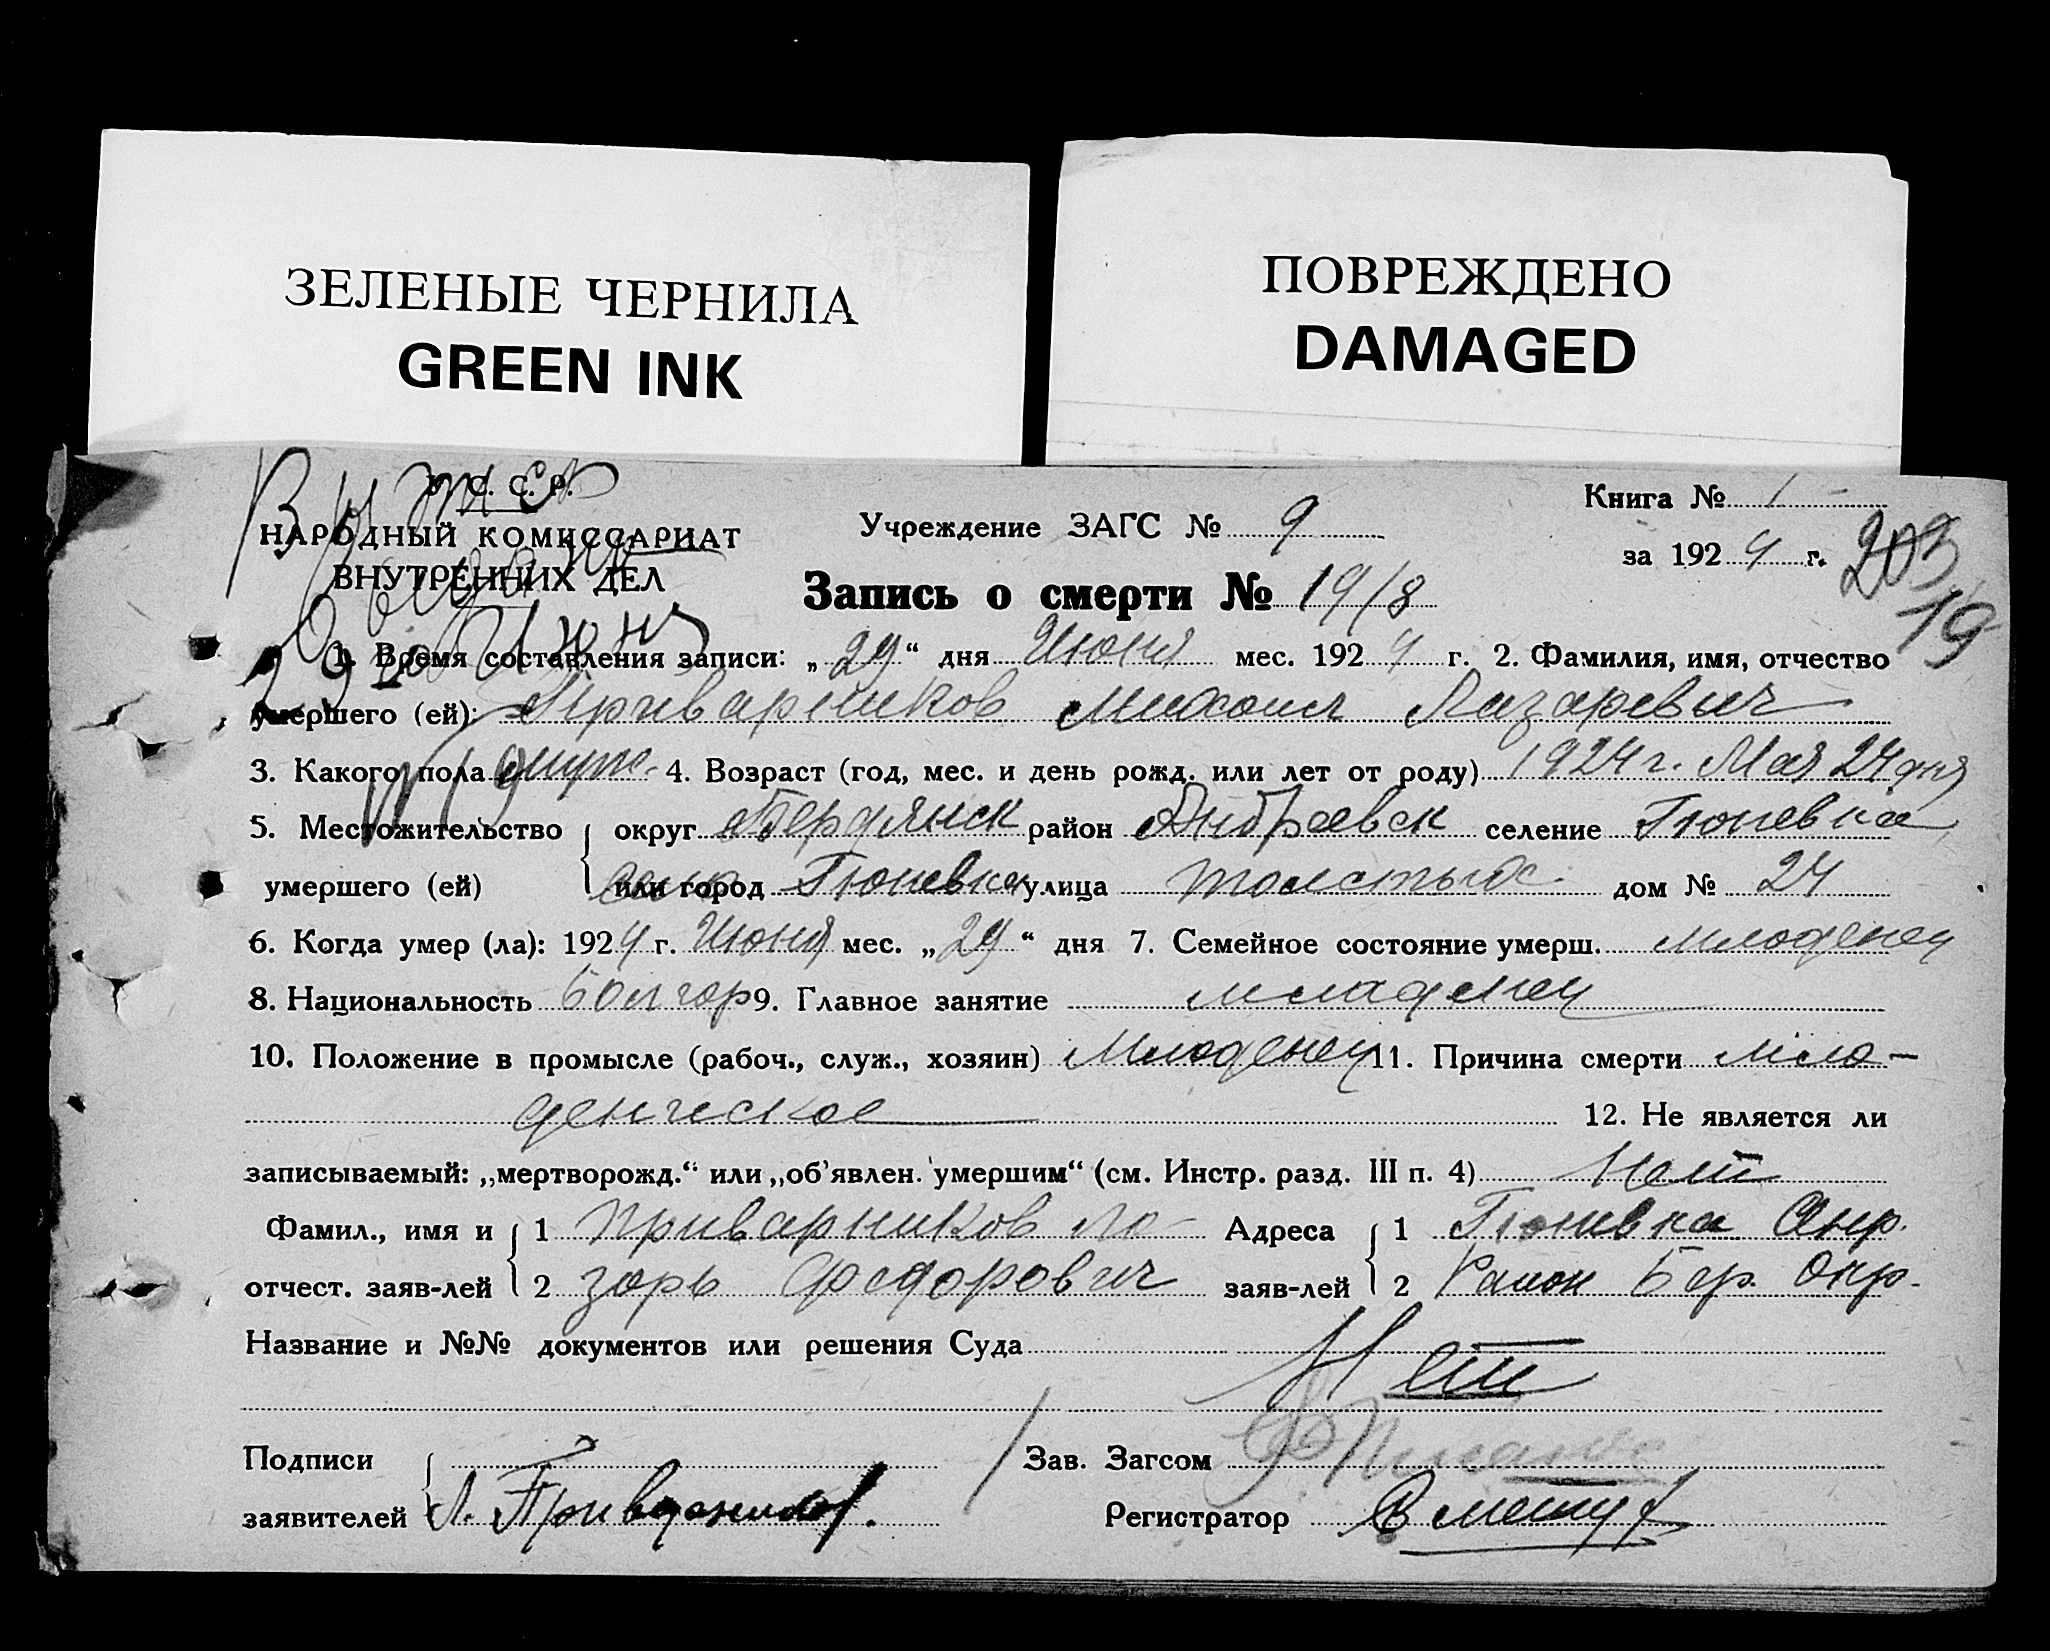 ЗЕЛЕНЫЕ ЧЕРНИЛА
GREEN INK
ПОВРЕЖДЕНО
DAMAGED
С. С. Р.
НАРОДНЫЙ КОМИССАРИАТ
ВНУТРЕННИХ ДЕЛ
Учреждение ЗАГС № 9
Книга № 1
за 1924 г.
203
19
Запись о смерти № 19/8
29 Июня
1. Время составления записи: „29“ дня Июня мес. 1924 г. 2. Фамилия, имя, отчество
умершего (ей): Приварников Михаил Лазаревич
3. Какого пола 4. Возраст (год, мес. и день рожд. или лет от роду) 1924 г. Мая 24 дня
5. Местожительство округ Бердянск район Андраевск селение Гюневка
умершего (ей) или город Гюневка улица толстых дом № 24
6. Когда умер (ла): 1924 г. Июня мес. „29“ дня 7. Семейное состояние умерш. младенец
8. Национальность болгар 9. Главное занятие младенец
10. Положение в промысле (рабоч., служ., хозяин) Младенец 11. Причина смерти мла-
денческое 12. Не является ли
записываемый: „мертворожд.“ или „об'явлен. умершим“ (см. Инстр. разд. III п. 4) Нет
Фамил., имя и 1 Приварников Ла- Адреса 1 Гюневка Анр.
отчест. заяв-лей 2 зарь Федорович заяв-лей 2 Район Бер. Окр.
Название и №№ документов или решения Суда Нет
Подписи Зав. Загсом
заявителей Л. Приварников. Регистратор